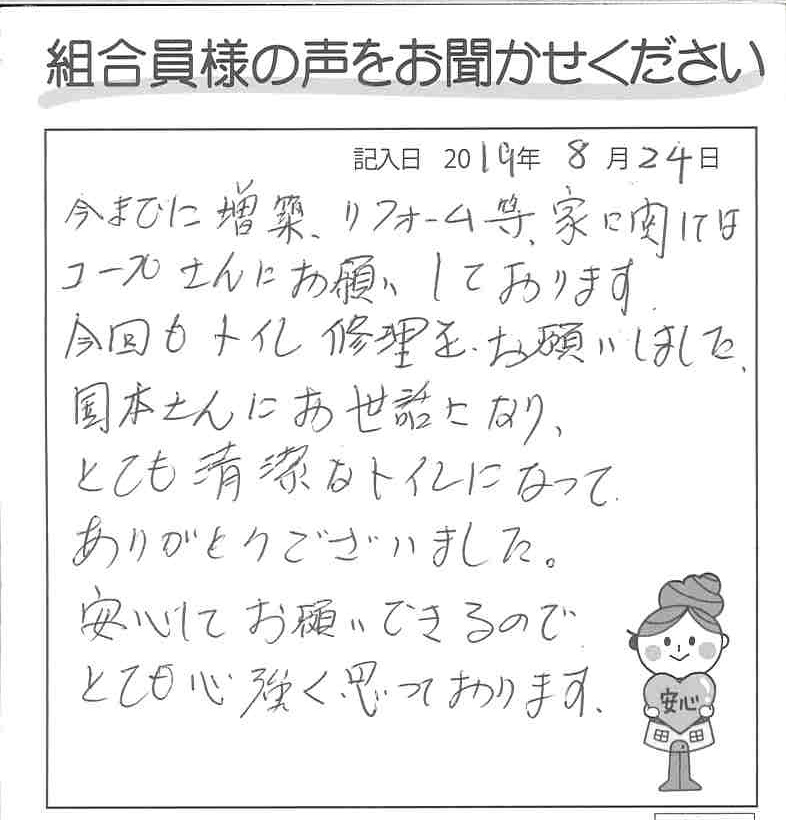 組合員様の声をお聞かせください
記入日 2019年 8月24日
今までに増築、リフォーム等、家に関しては
コープさんにお願いしております
今回もトイレ修理をお願いしました、
国本さんにお世話になり、
とても清潔なトイレになって
ありがとうございました。
安心してお願いできるので
とても心強く思っております、
安心